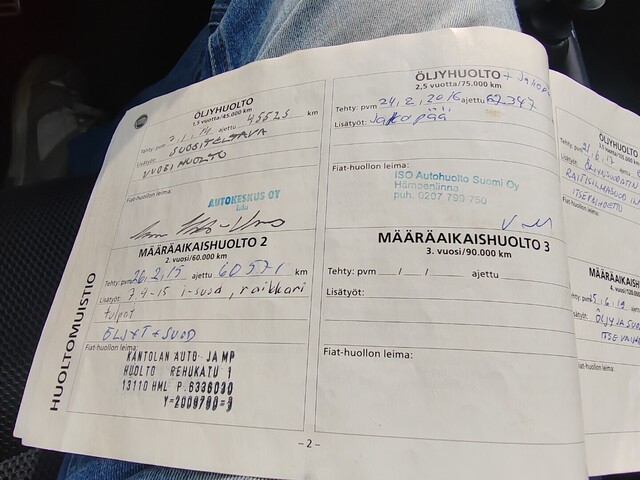 HUOLTOMUISTIO
ÖLJYHUOLTO
1,5 vuotta/45.000 km
Tehty: pvm ajettu 45525 km
Lisätyöt: SUOSITELTAVA
VUOSIHUOLTO
Fiat-huollon leima:
AUTOKESKUS OY
MÄÄRÄAIKAISHUOLTO 2
2. vuosi/60.000 km
Tehty: pvm 26.2.15 ajettu 60571 km
Lisätyöt: 7.4-15 i-suod, raikkari
tulpat
ÖLJYT + SUOD
Fiat-huollon leima:
KANTOLAN AUTO- JA MP
HUOLTO REHUKATU 1
13110 HML P.6336030
Y=2009790=3
ÖLJYHUOLTO + Jakop
2,5 vuotta/75.000 km
Tehty: pvm 24.2.2016 ajettu 62347
Lisätyöt: Jakopää
Fiat-huollon leima:
ISO Autohuolto Suomi Oy
Hämeenlinna
puh. 0207 799 750
MÄÄRÄAIKAISHUOLTO 3
3. vuosi/90.000 km
Tehty: pvm / / ajettu
Lisätyöt:
Fiat-huollon leima:
-2-
ÖLJYH
RAITISILMASUOD
ITSE TEHDETTY
Fiat-huollon leima:
MÄÄRÄ
4. vuosi/120.00
5.6.19
ÖLJY JA SUO
ITSE VAIH
Fiat-huollon leima: